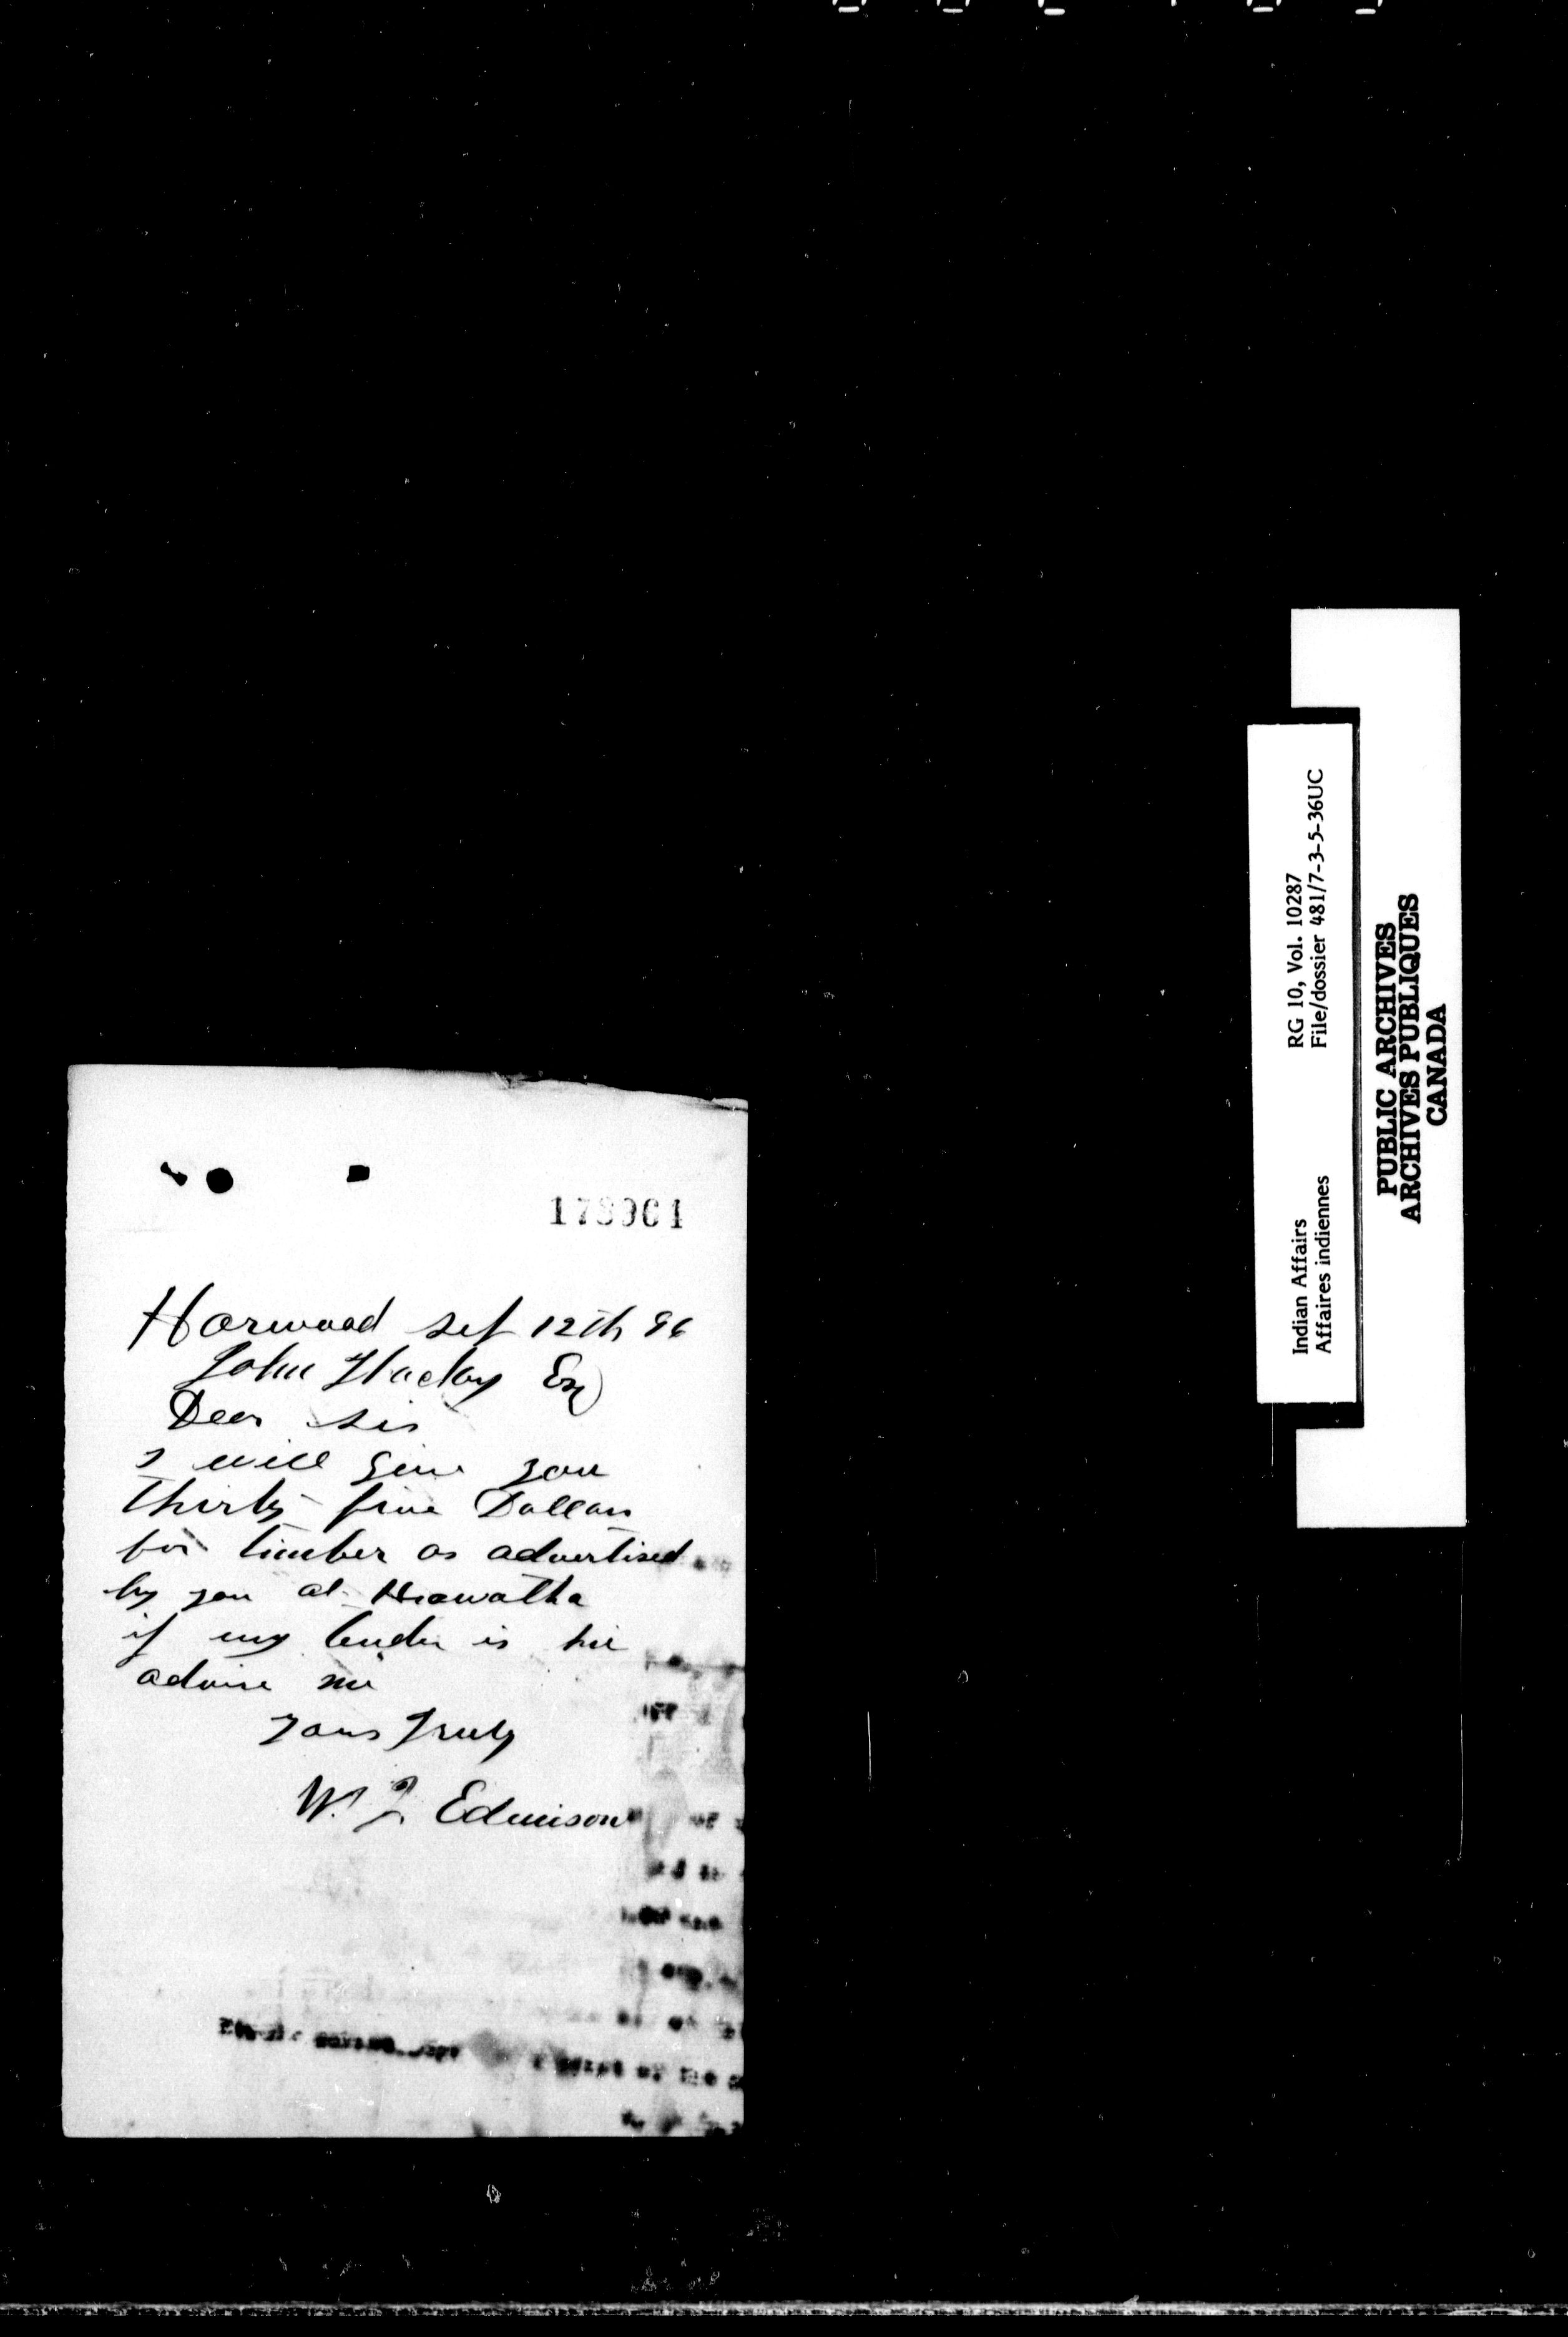 Harwood sep 12th 96
John Thackay Esq
Dear sir
I will give you
Thirty five Dollars
for timber as advertised
by you at Hiawatha
if my tender is hie
advise me
yours Truly
W. J. Edmison
Indian Affairs RG 10, Vol. 10287
Affaires indiennes File/dossier 481/7-3-5-36UC
PUBLIC ARCHIVES
ARCHIVES PUBLIQUES
CANADA